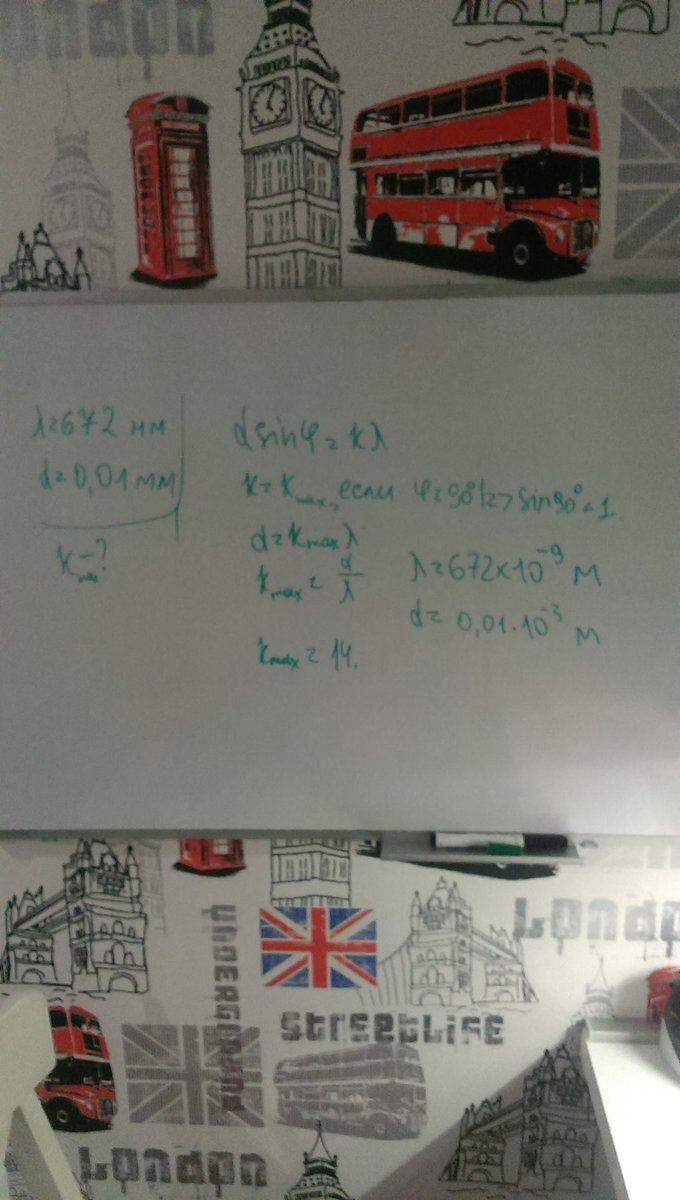 London
λ=672 нм
d=0,01 мм
k max -?
d sinφ = kλ
k=k max, если φ=90° |=> sin90°=1.
d=k max λ
k max = d/λ
λ=672×10⁻⁹ м
d= 0,01·10⁻³ м
k max = 14.
UNDERGROUND
LONDON
STREETLIFE
LONDON